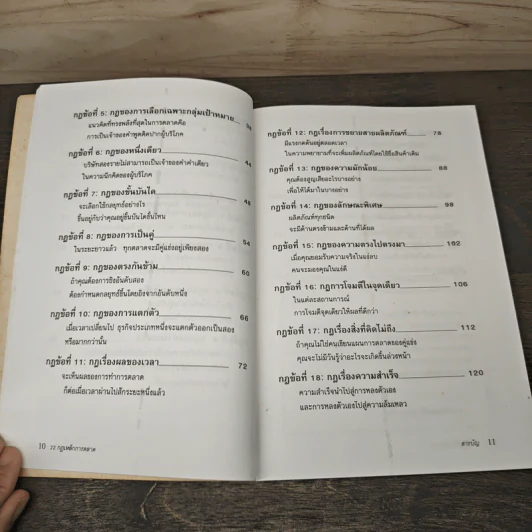 กฎข้อที่ 5: กฎของการเลือกเฉพาะกลุ่มเป้าหมาย
แนวคิดที่ทรงพลังที่สุดในการตลาดคือ
การเป็นเจ้าของคำพูดคิดปากผู้บริโภค
กฎข้อที่ 6: กฎของหนึ่งเดียว 44
บริษัทสองรายไม่สามารถเป็นเจ้าของคำคำเดียว
ในความนึกคิดของผู้บริโภค
กฎข้อที่ 7: กฎของขั้นบันได 48
จะเลือกใช้กลยุทธ์อย่างไร
ขึ้นอยู่กับว่าคุณอยู่ขั้นบันไดขั้นไหน
กฎข้อที่ 8: กฎของการเป็นคู่ 54
ในระยะยาวแล้ว ทุกตลาดจะมีคู่แข่งอยู่เพียงสอง
กฎข้อที่ 9: กฎของตรงกันข้าม 60
ถ้าคุณต้องการชิงอันดับสอง
ต้องกำหนดกลยุทธ์ขึ้นโดยอิงจากอันดับหนึ่ง
กฎข้อที่ 10: กฎของการแตกตัว 66
เมื่อเวลาเปลี่ยนไป ธุรกิจประเภทหนึ่งจะแตกตัวออกเป็นสอง
หรือมากกว่านั้น
กฎข้อที่ 11: กฎเรื่องผลของเวลา 72
จะเห็นผลของการทำการตลาด
ก็ต่อเมื่อเวลาผ่านไปสักระยะหนึ่งแล้ว
10 22 กฎหลักการตลาด
กฎข้อที่ 12: กฎเรื่องการขยายสายผลิตภัณฑ์ 78
มีแรงกดดันอยู่ตลอดเวลา
ในความพยายามที่จะเพิ่มผลิตภัณฑ์โดยใช้ชื่อสินค้าเดิม
กฎข้อที่ 13: กฎของความมักน้อย 88
คุณต้องสูญเสียอะไรบางอย่าง
เพื่อให้ได้มาในบางอย่าง
กฎข้อที่ 14: กฎของลักษณะพิเศษ 98
ผลิตภัณฑ์ทุกชนิด
จะมีด้านตรงข้ามและด้านที่ได้ผล
กฎข้อที่ 15: กฎของความตรงไปตรงมา 102
เมื่อคุณยอมรับความจริงในแง่ลบ
คนจะมองคุณในแง่ดี
กฎข้อที่ 16: กฎการโจมตีในจุดเดียว 106
ในแต่ละสถานการณ์
การโจมตีจุดเดียวให้ผลที่ดีกว่า
กฎข้อที่ 17: กฎเรื่องสิ่งที่คิดไม่ถึง 112
ถ้าคุณไม่ใช่คนเขียนแผนการตลาดของคู่แข่ง
คุณจะไม่มีวันรู้ว่าอะไรจะเกิดขึ้นล่วงหน้า
กฎข้อที่ 18: กฎเรื่องความสำเร็จ 120
ความสำเร็จนำไปสู่การหลงตัวเอง
และการหลงตัวเองไปสู่ความล้มเหลว
สารบัญ 11